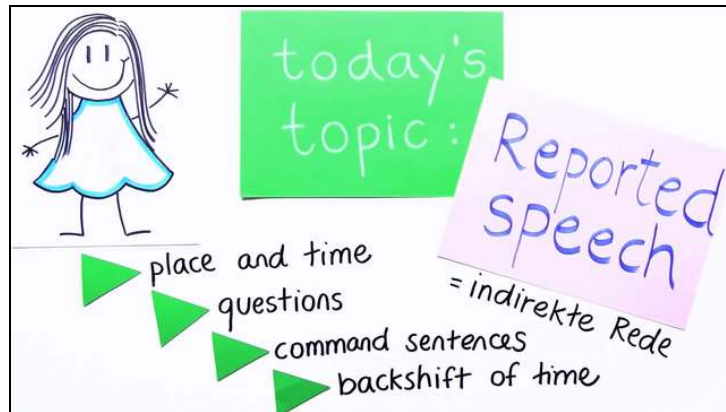 today's
topic :
Reported
speech
= indirekte Rede
place and time
questions
command sentences
backshift of time